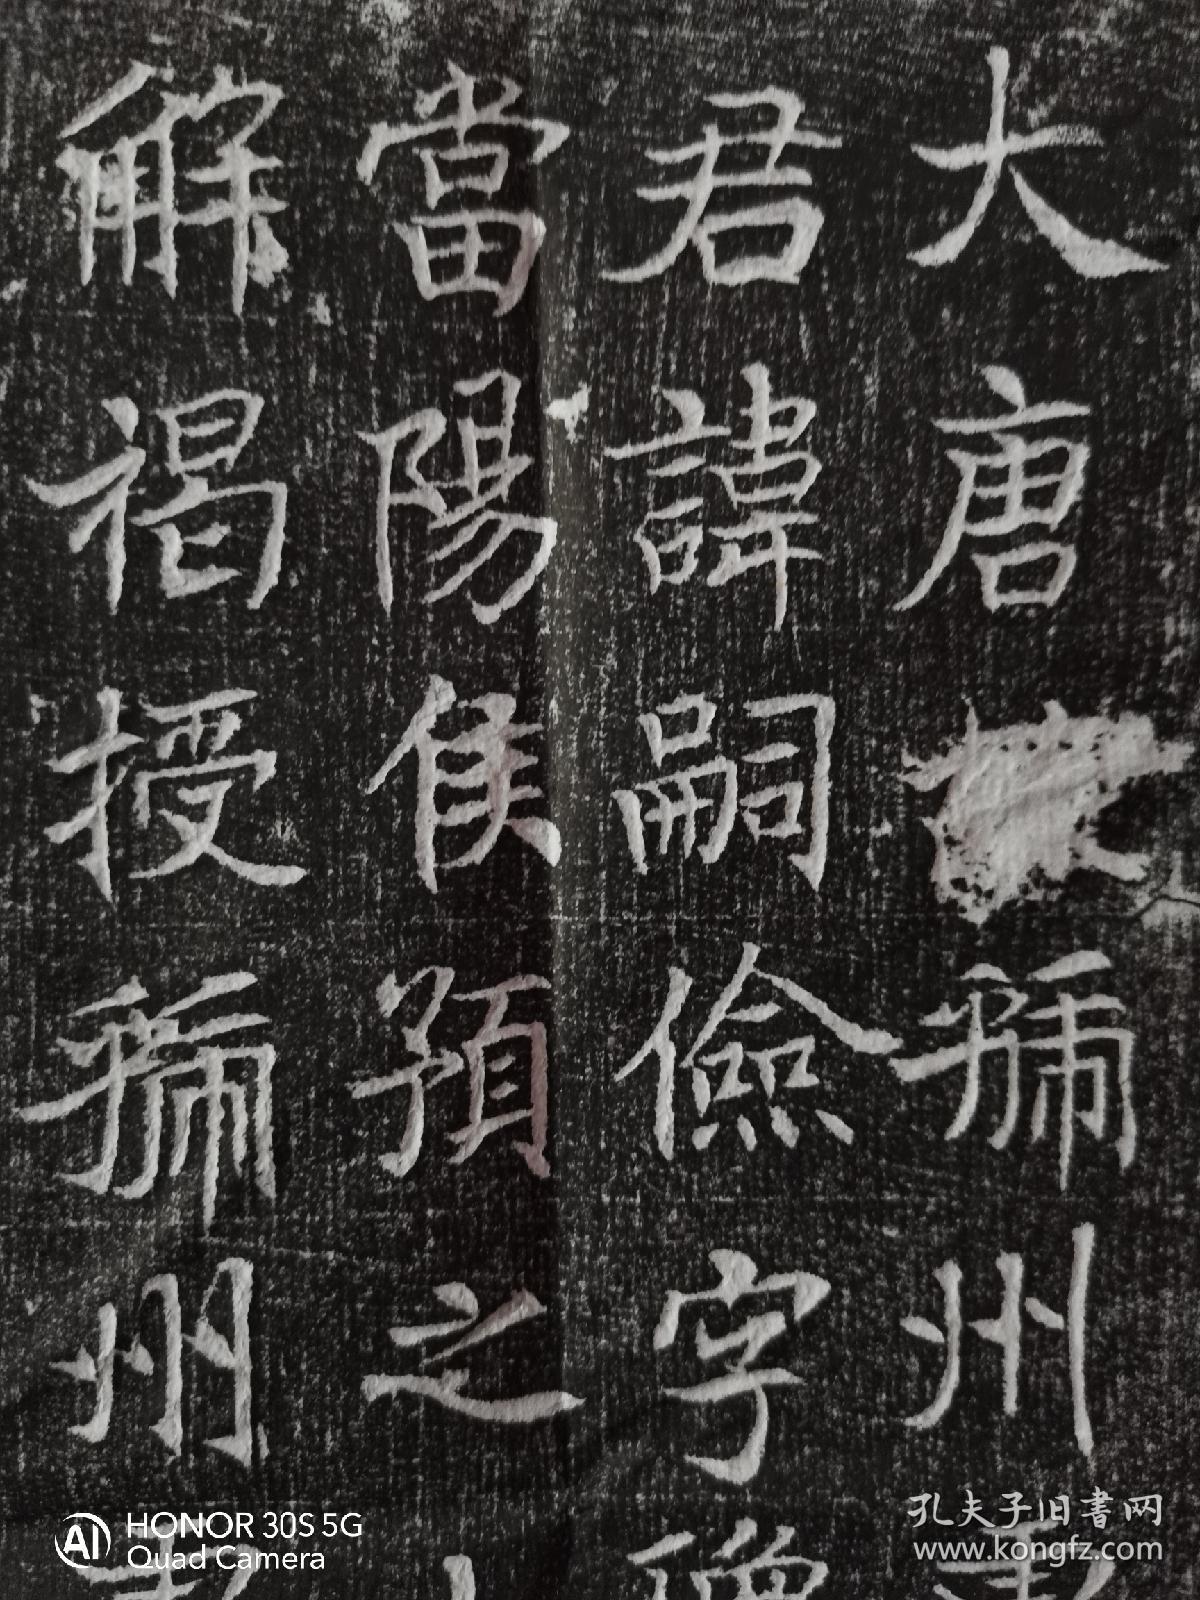 大唐州
君諱嗣儉字
當陽侯預之
解褐授州
HONOR 30S 5G
Quad Camera
孔夫子旧書网
www.kongfz.com